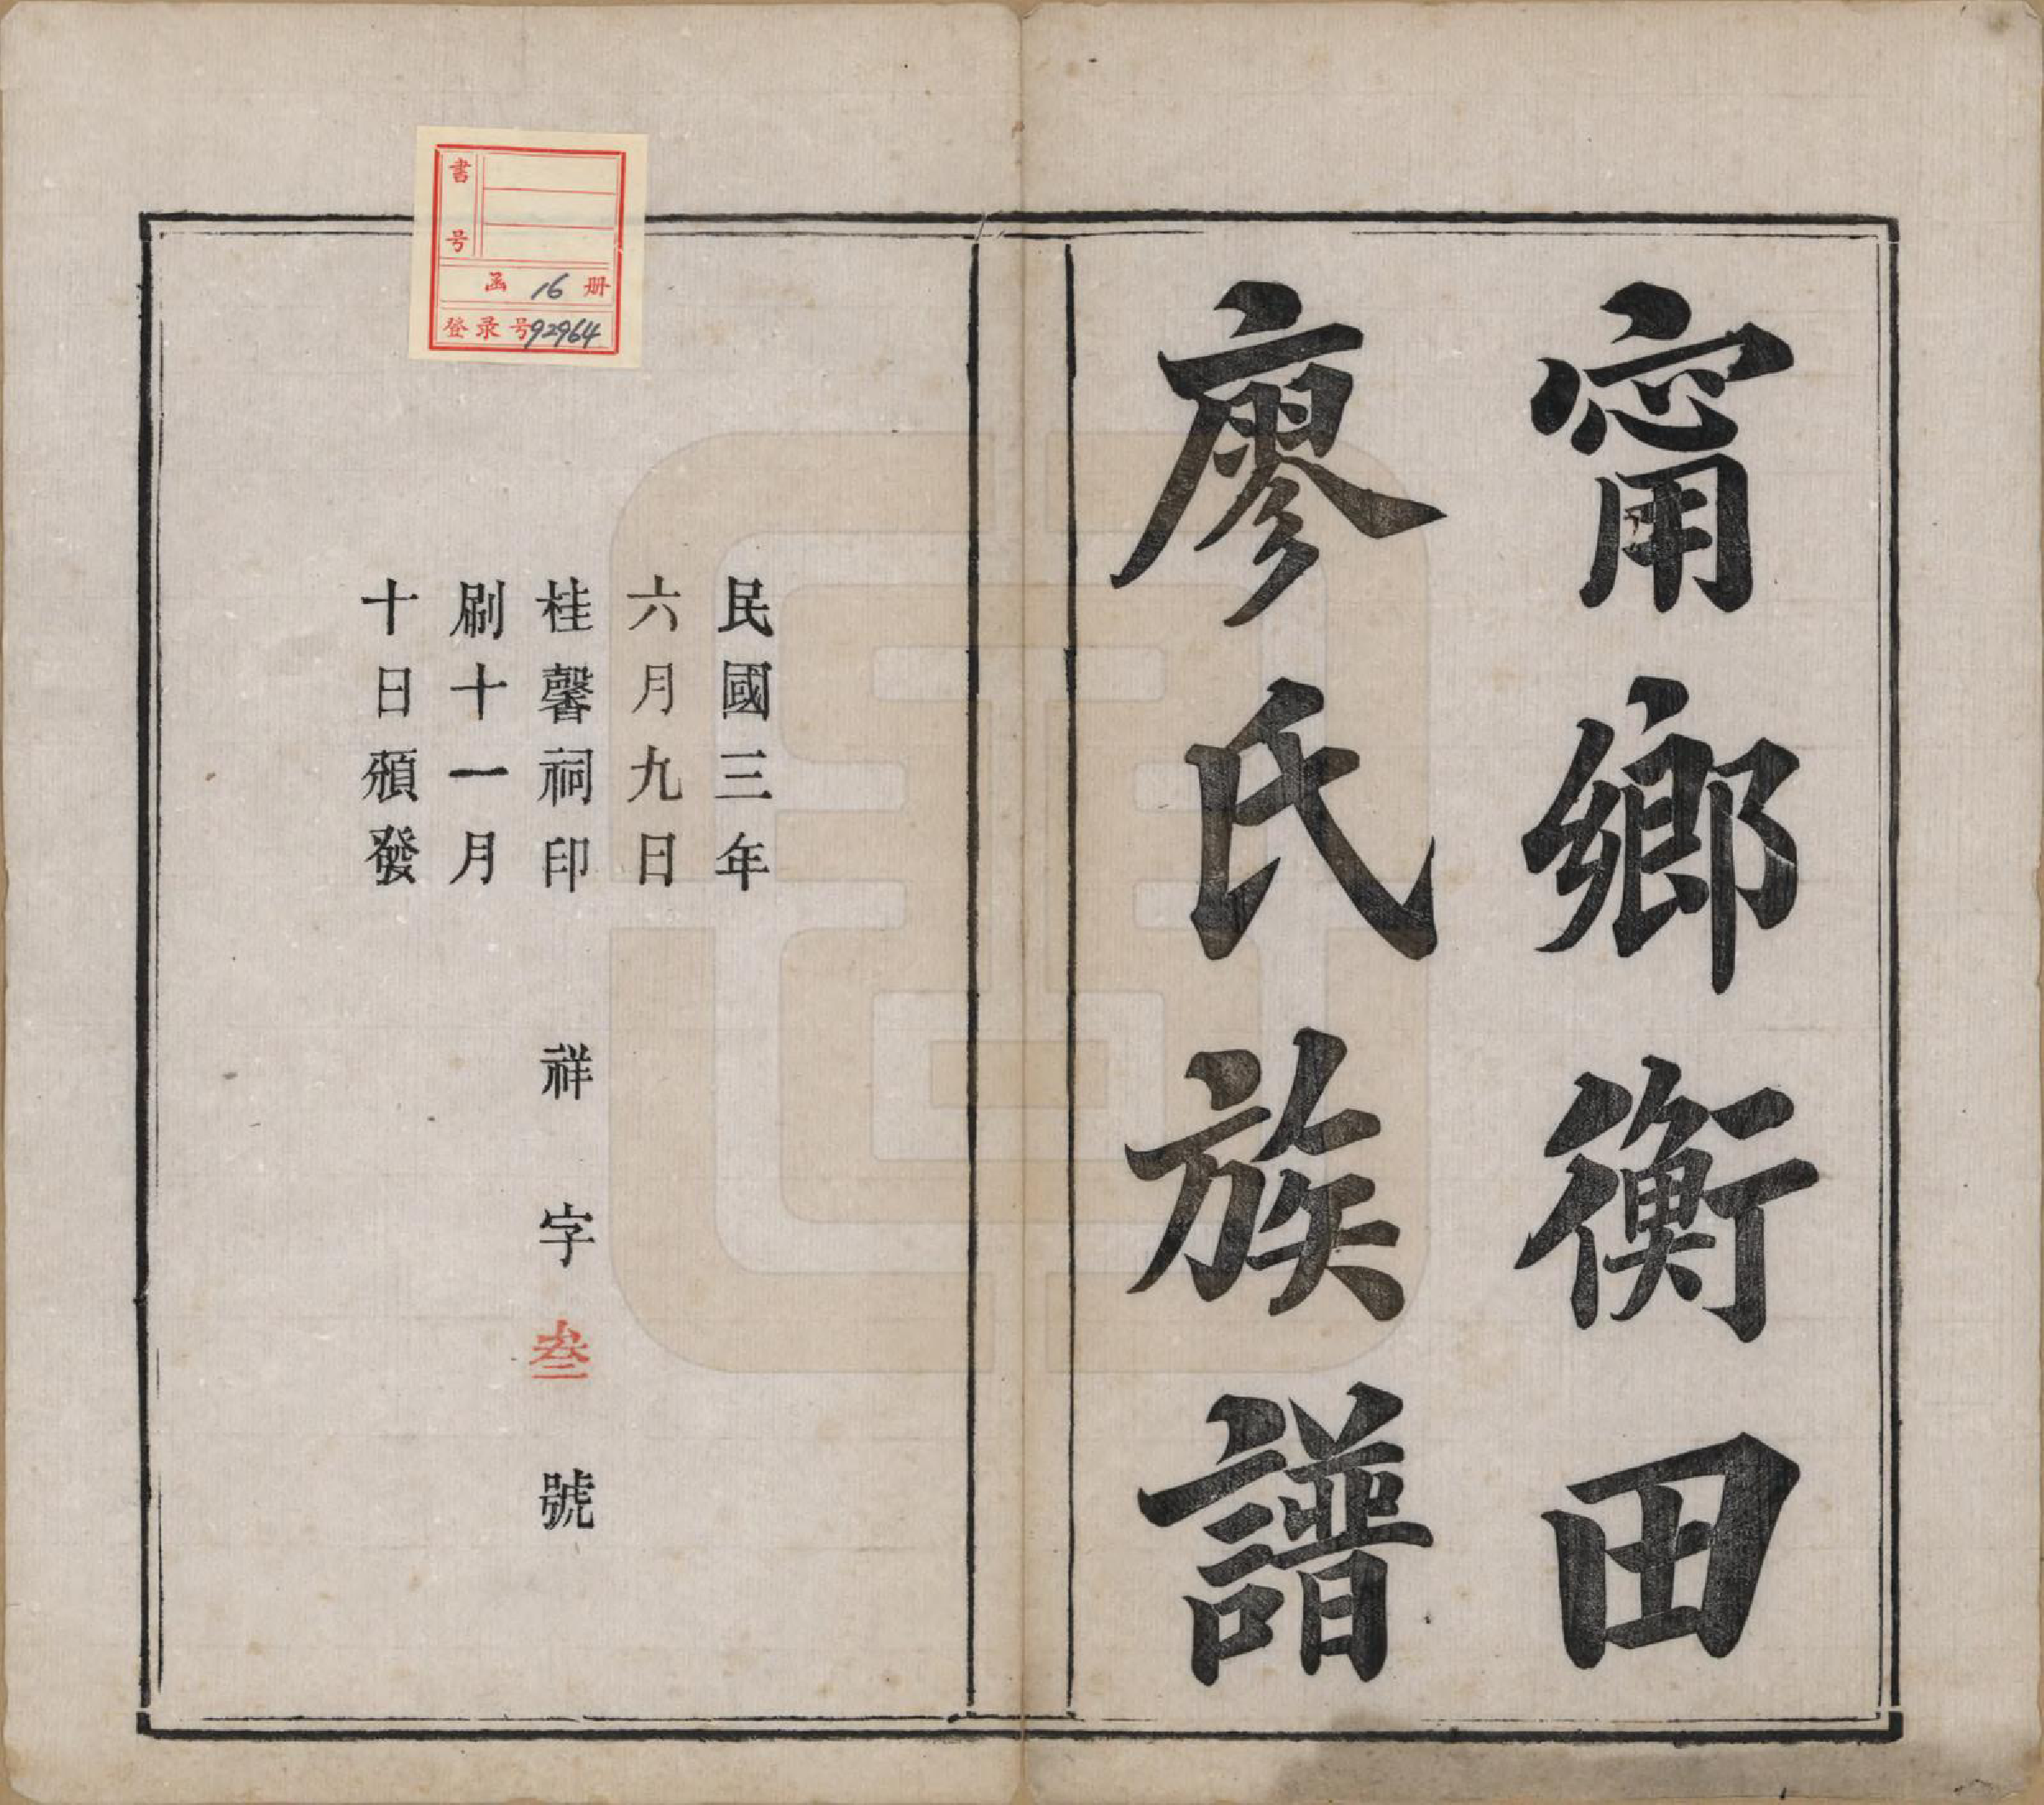 甯鄉衡田
廖氏族譜
民國三年
六月九日
桂馨祠印 祥字叁號
刷十一月
十日頒發
書号
函 16 册
登录号92964